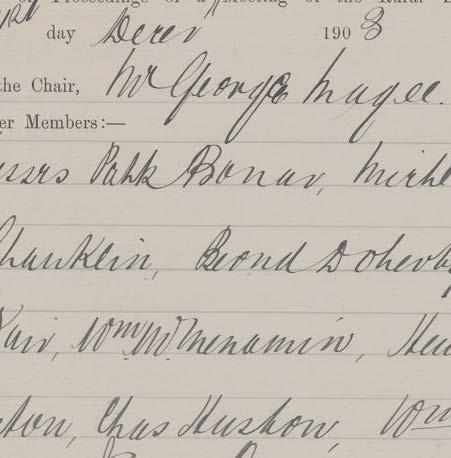 Proceedings of a Meeting of the Rural
day Decr 1903
the Chair, Mr George Magee.
er Members:—
essrs Patk Bonar, Michl
Bernd Doherty
Wm McMenamin,
ston, Chas Huston, Wm